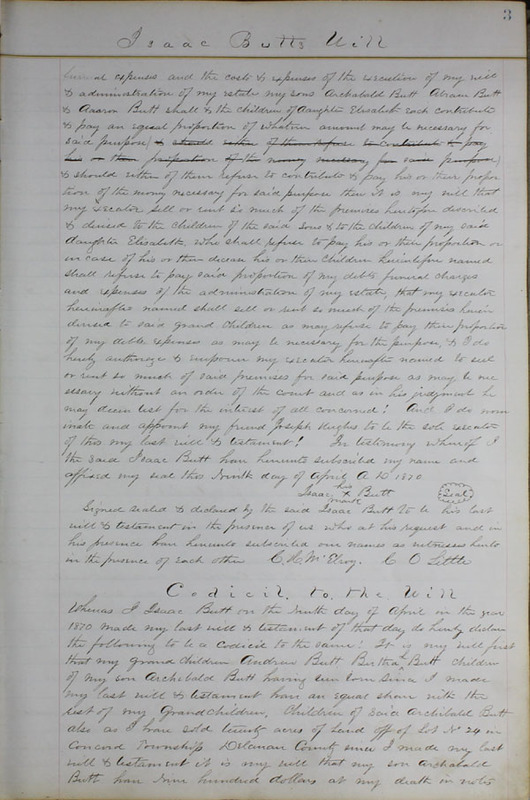 3
Isaac Butts Will
funeral expenses and the costs & expenses of the execution of my will
& administration of my estate my sons Archabald Butt Abram Butt
& Aaaron Butt shall & the children of daughter Elisabeth each contribute
& pay an equal proportion of whatever amount may be necessary for
said purpose) & should either of them refuse to contribute & pay
his or their proportion of the money necessary for said purpose)
& should either of them refuse to contribute & pay his or their propor
tion of the money necessary for said purpose then it is my will that
my Executor sell or rent so much of the premises heretofore described
& devised to the children of the said sons & to the children of my said
daughter Elisabeth, who shall refuse to pay his or their proportion or
in case of his or their decease his or their children hereinbefore named
shall refuse to pay said proportion of my debts funeral charges
and expenses of the administration of my estate, that my executor
hereinafter named shall sell or rent so much of the premises herein
devised to said grand children as may refuse to pay their proportion
of my debts expenses as may be necessary for the purpose, & I do
hereby authorize & empower my executor hereafter named to sell
or rent so much of said premises for said purpose as may be ne
cessary without an order of the court and as in his judgment he
may deem best for the interest of all concerned! And I do nom
inate and appoint my friend Joseph Hughs to be the sole executor
of this my last will & testament! In testimony whereof I
the said Isaac Butt have hereunto subscribed my name and
affixed my seal this Ninth day of April A D 1870
Isaac his X mark Butt Seal
Signed sealed & declared by the said Isaac Butt to be his last
will & testament in the presence of us who at his request and in
his presence have hereunto subscribed our names as witnesses hereto
in the presence of each other C. H. McElroy. C O Little
Codicil to the Will
Whereas I Isaac Butt on the Ninth day of April in the year
1870 made my last will & testament of that day do hereby declare
the following to be a codicil to the same! It is my will first
that my grand children Andrew Butt Bertha Butt children
of my son Archabald Butt having been born since I made
my last will & testament have an equal share with the
rest of my Grandchildren, Children of said Archibald Butt
also as I have sold twenty acres of land off of lot No 24 in
Concord Township Delaware County since I made my last
will & testament it is my will that my son Archabald
Butt have nine hundred dollars at my death in notes